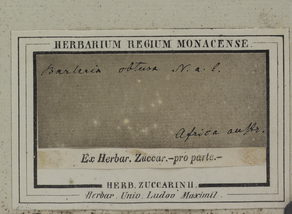 HERBARIUM REGIUM MONACENSE.
Barleria obtusa N. a. E.
Africa austr.
Ex Herbar. Zuccar.-pro parte.-
HERB. ZUCCARINII.
Herbar. Univ. Ludov. Maximil.